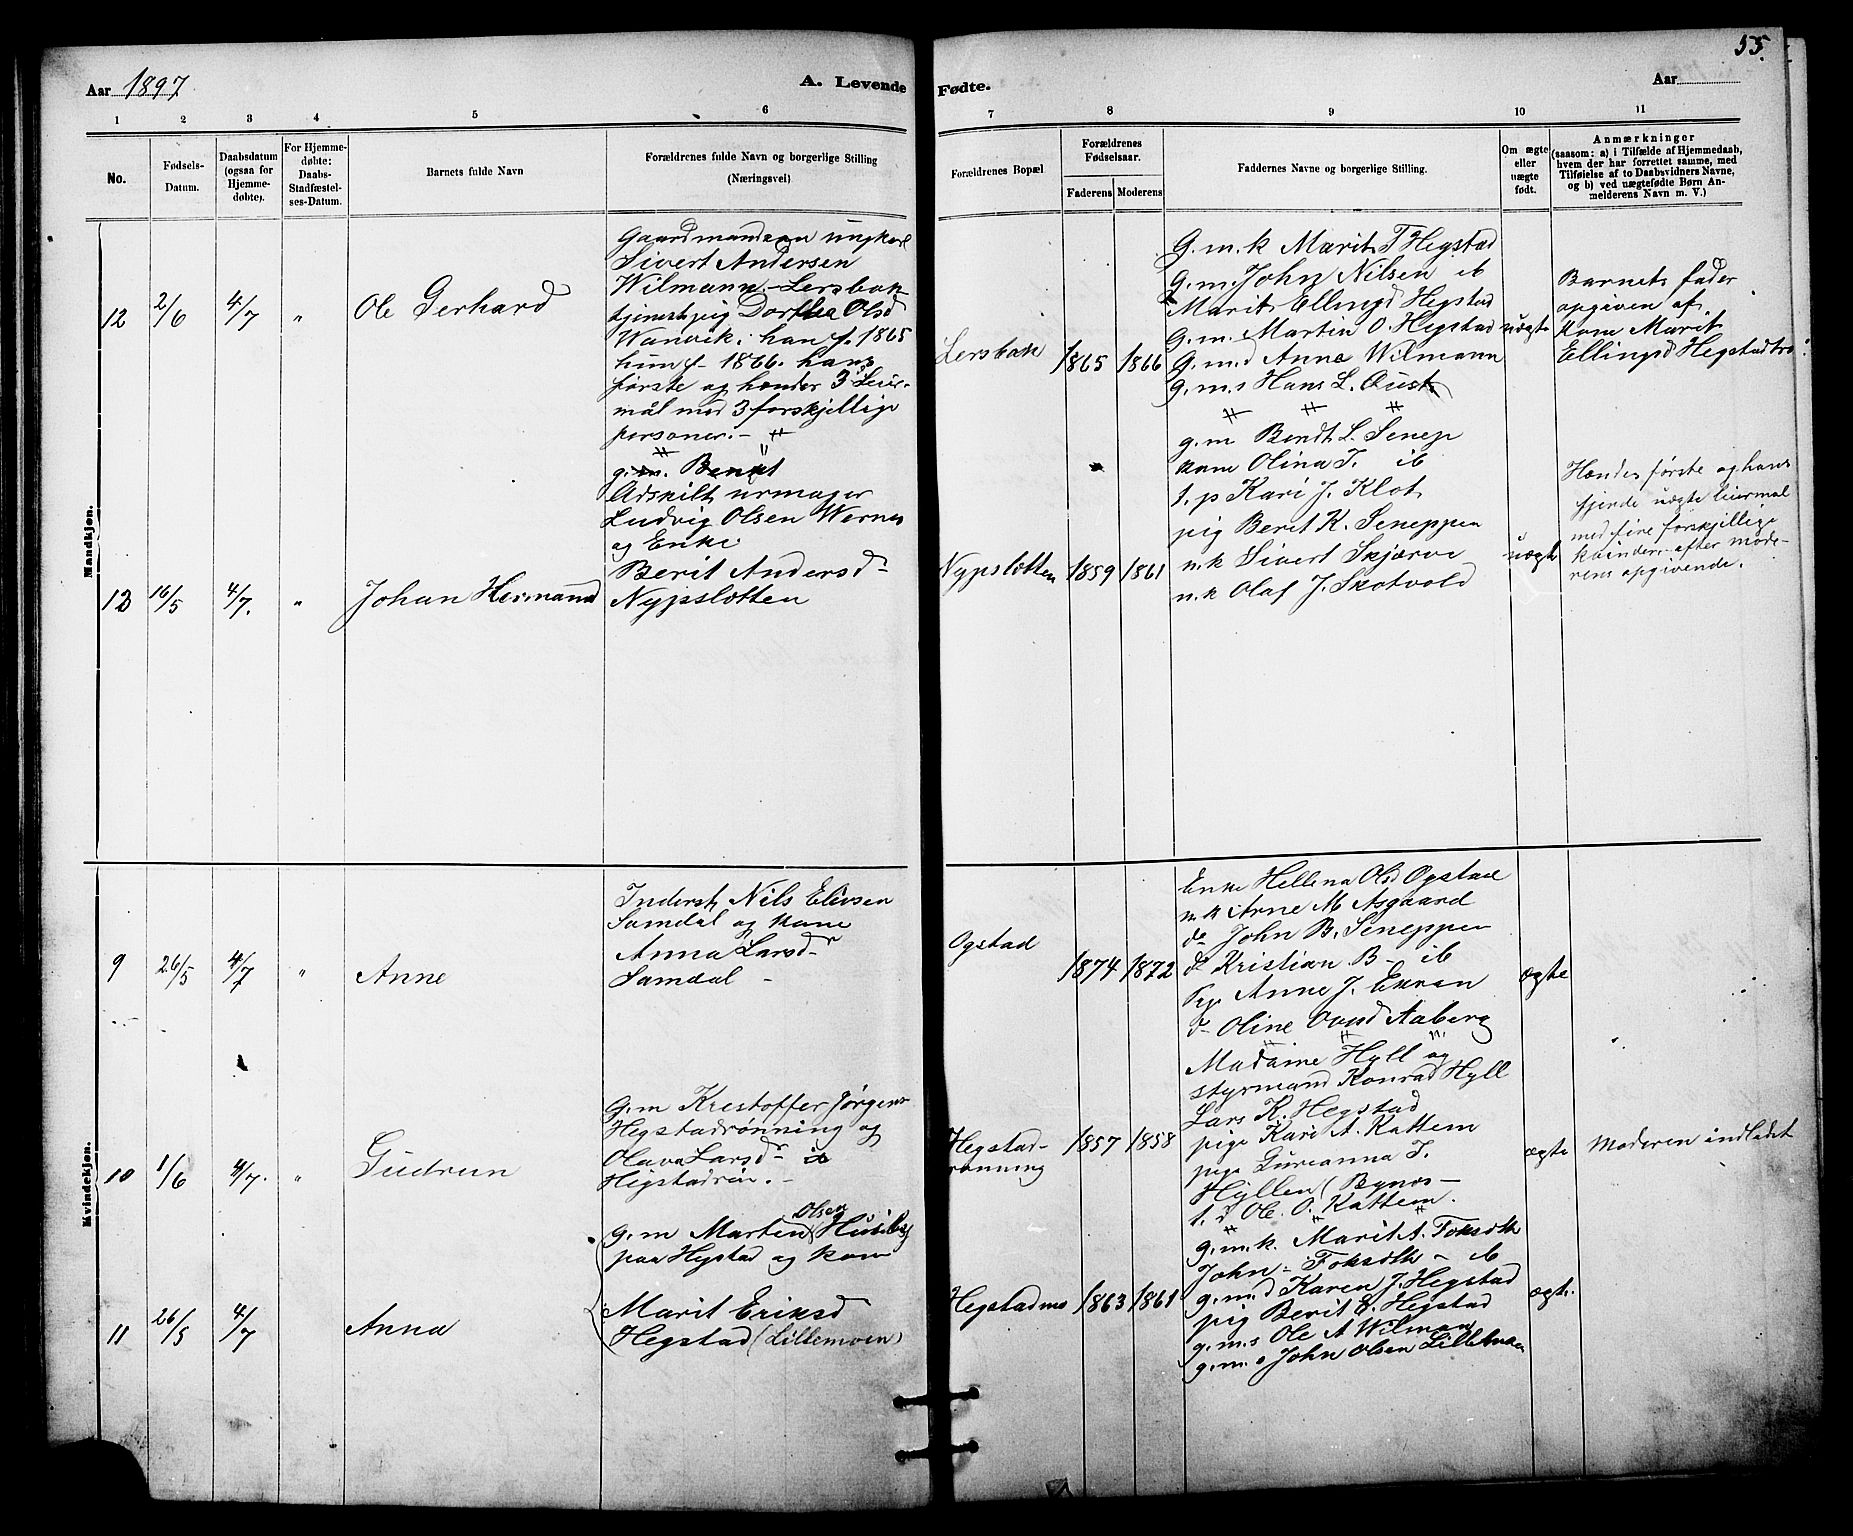 55.
Aar 1897
A. Levende
Fødte.
Aar
1 2 3 4 5 6 7 8 9 10 11
No.
Fødsels-
Datum.
Daabsdatum
(ogsaa for
Hjemme-
døbte).
For Hjemme-
døbte:
Daabs-
Stadfæstel-
ses-Datum.
Barnets fulde Navn
Forældrenes fulde Navn og borgerlige Stilling
(Næringsvei)
Forældrenes Bopæl
Forældrenes
Fødselsaar.
Faderens Moderens
Faddernes Navne og borgerlige Stilling.
Om ægte
eller
uægte
født.
Anmærkninger
(saasom: a) i Tilfælde af Hjemmedaab,
hvem der har forrettet samme, med
Tilføielse af to Daabsvidners Navne,
og b) ved uægtefødte Børn An-
melderens Navn m. V.)
Mandkjøn.
12 2/6 4/7 " Ole Gerhard
Gaardmandsøn ungkarl
Sivert Andersen
Wilmann - Lersbak
tjenestpig Dorthea Olsd
Wanvik; han f. 1865
hun f. 1866. hans
første og hendes 3 Leier-
mål med 3 forskjellige
personer. -
Lersbak 1865 1866
G.m.k Marit T Hegstad
g.m. John Nilsen ib
Marit Ellingsd Hegstad
g.m.s Martin O. Hegstad
g.m.d Anna Wilmann
g.m.s Hans L. Øust
uægte
Barnets fader
opgiven af
kone Marit
Ellingsd Hegstadtrø
13 16/5 4/7. " Johan Hermand
g.m. Bendt
Adskilt urmager
Ludvig Olsen Wernes
og Enke
Berit Andersd
Nypsletten
Nypsletten 1859 1861
g.m Bendt L. Senep
kone Olina T. ib
t.p Kari J. Klot
pig Berit K. Seneppen
n.k Sivert Skjærve
n.k Olaf J. Skotvold
uægte
Hendes første og hans
fjerde uægte leiermal
med fire forskjellige
kvinder. efter mode-
rens opgivende.
Kvindekjøn.
9 26/5 4/7 " Anne
Inderst Nils Elivsen
Samdal og kone
Anna Larsdr
Samdal -
Ogstad 1874 1872
Enke Hellena Olsd Ogstad
n.k Arne M Asgaard
do John B. Seneppen
do Kristian B - ib
Pige Anne J. Ekran
do Oline Aaberg
ægte
10 1/6 4/7. " Gudrun
g.m Krestoffer Jørgens
Hegstadrønning og
Olava Larsdr ib
Hegstadrøn. -
Hegstad-
rønning 1857 1858
Madame Hyll og
styrmand Konrad Hyll
Lars K. Hegstad
pige Kari A. Kattem
pige Gureanna T.
Hyllen (Bynes -
t.d Ole O. Kattem.
ægte
Moderen indledet
11 26/5 4/7 Anna
g.m Marten Olsen Husiby
paa Hegstad og kone
Marit Eriksd
Hegstad (Lillemoen)
Hegstadmo 1863 1861
g.m.k. Marit A. Foksdth
John - Foksdth - ib
g.m.d Karen J. Hegstad
pig Berit E. Hegstad
g.m.s Ole A Wilman
g.m.s John Olsen Lillemoen
ægte.